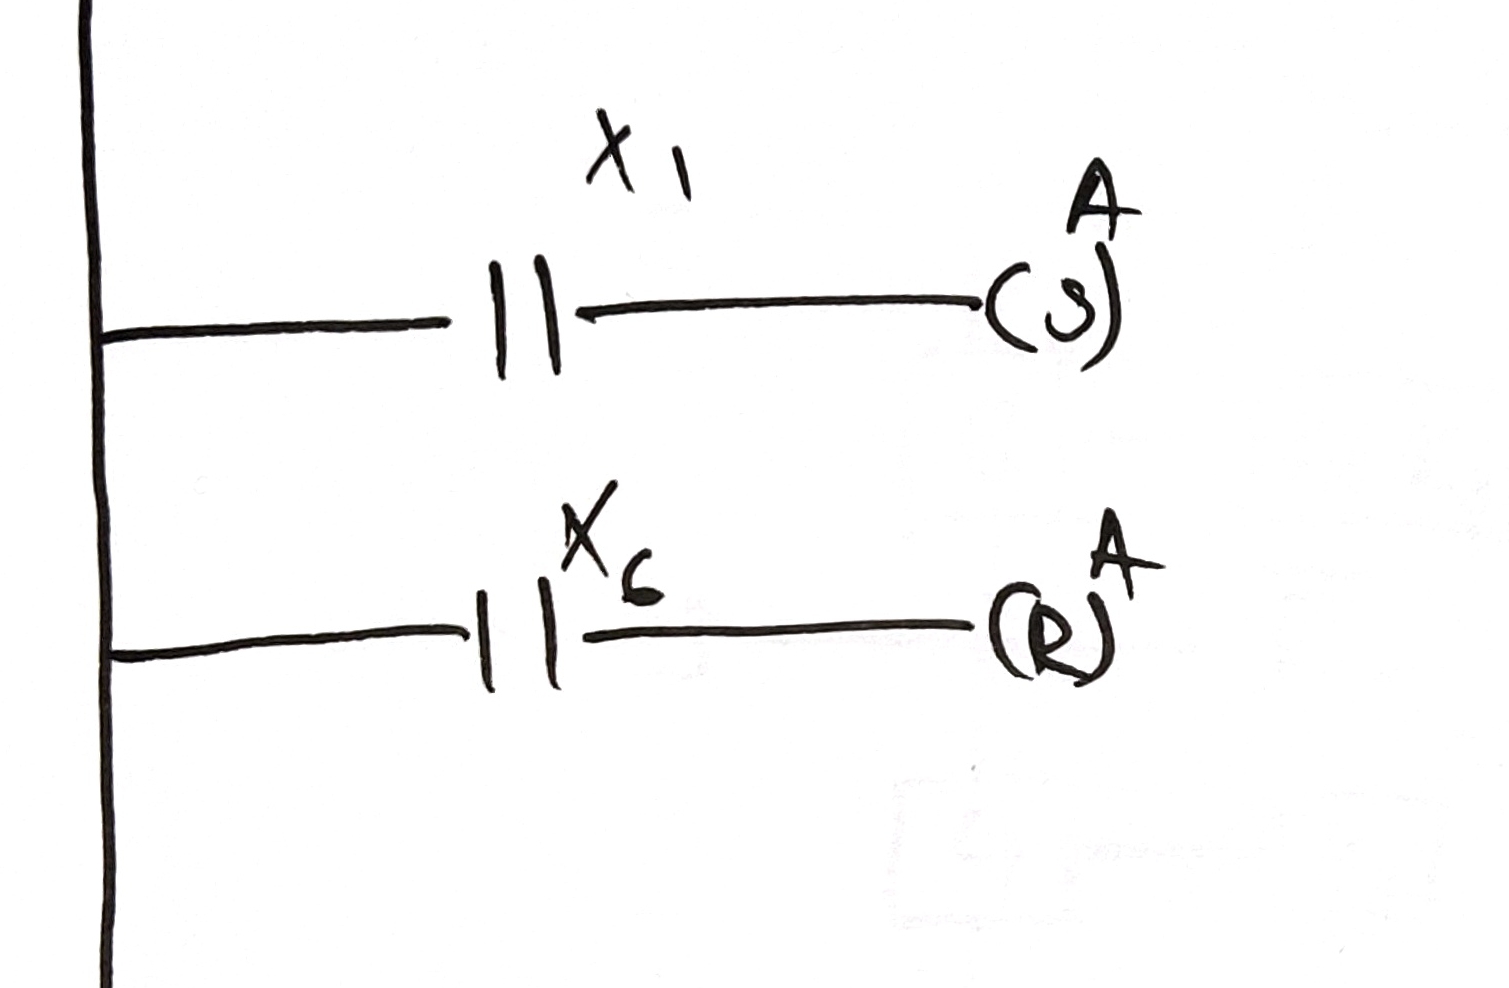 X1
A
(S)
X6
A
(R)